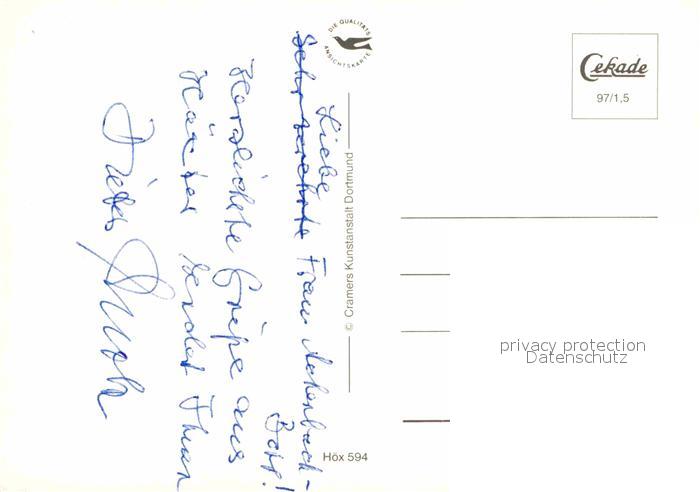 DIE QUALITÄTS
ANSICHTSKARTE
Cekade
97/1,5
© Cramers Kunstanstalt Dortmund
Höx 594
privacy protection
Datenschutz
Liebe
sehr verehrte Frau Achenbach-
Herzlichste Grüße aus
Höxter sendet Ihnen
Dieter